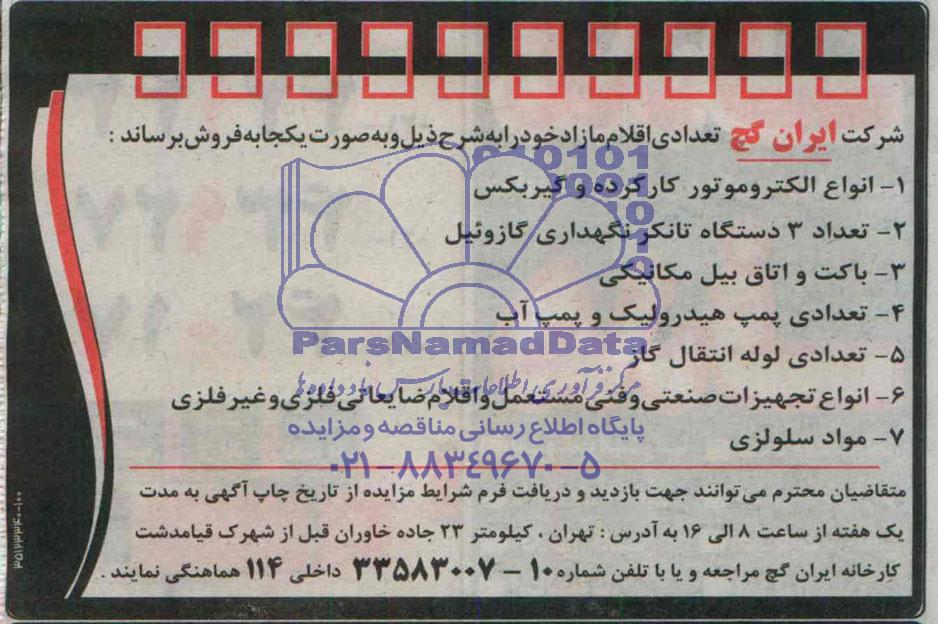 شرکت ایران گچ تعدادی اقلام مازاد خود را به شرح ذیل و به صورت یکجا به فروش برساند :
۱- انواع الکتروموتور کارکرده و گیربکس
۲- تعداد ۳ دستگاه تانکر نگهداری گازوئیل
۳- باکت و اتاق بیل مکانیکی
۴- تعدادی پمپ هیدرولیک و پمپ آب
ParsNamadData
۵- تعدادی لوله انتقال گاز
مرکز فرآوری اطلاعات پارس نماد داده ها
۶- انواع تجهیزات صنعتی و فنی مستعمل و اقلام ضایعاتی فلزی و غیر فلزی
پایگاه اطلاع رسانی مناقصه و مزایده
۷- مواد سلولزی
۰۲۱-۸۸۳۴۹۶۷۰-۵
متقاضیان محترم می توانند جهت بازدید و دریافت فرم شرایط مزایده از تاریخ چاپ آگهی به مدت
یک هفته از ساعت ۸ الی ۱۶ به آدرس : تهران ، کیلومتر ۲۳ جاده خاوران قبل از شهرک قیامدشت
کارخانه ایران گچ مراجعه و یا با تلفن شماره ۱۰ – ۳۳۵۸۳۰۰۷ داخلی ۱۱۴ هماهنگی نمایند .